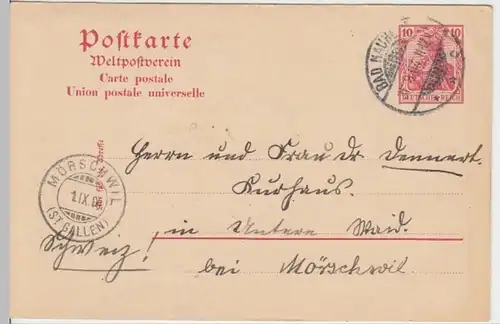 Postkarte
Weltpostverein
Carte postale
Union postale universelle
10 10
DEUTSCHES REICH
BAD NAUHEIM
Herrn und Frau Dr Dennert.
Kurhaus.
MÖRSCHWIL
1.IX.05
(ST. GALLEN)
in Untere Waid.
Schweiz!
bei Mörschwil.